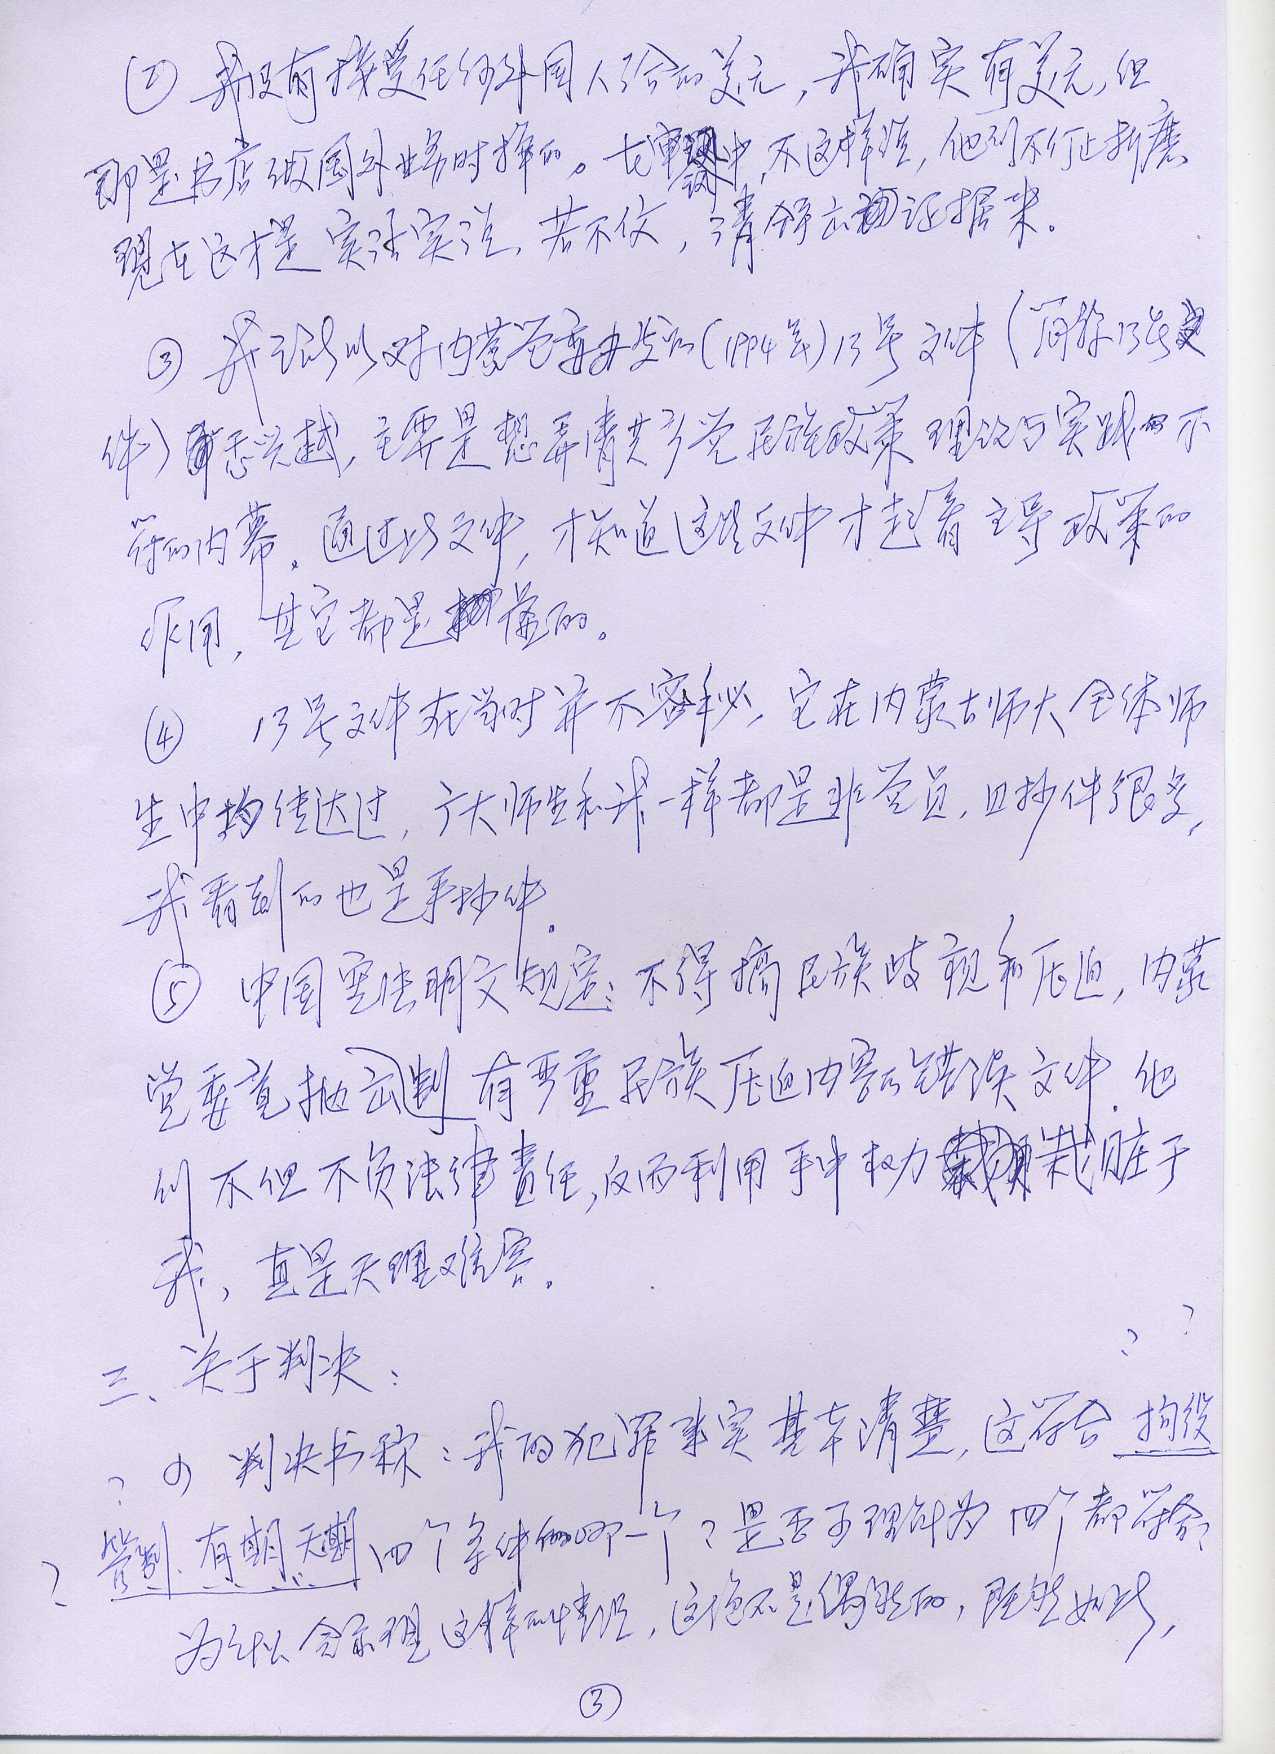 ② 我没有接受任何外国人给的美元，我确实有美元，但
那是书店做国外业务时挣的。在审讯中，不这样说，他们不停止折磨
现在这才是实话实说，若不仅，请拿出证据来。
③ 我之所以对内蒙党委办发的(1994年)13号文件（简称13号文
件）感兴趣，主要是想弄清共产党民族政策理论与实践的不
符的内幕。通过此文件，才知道这些文件才起着主导政策的
作用，其它都是 的。
④ 13号文件在当时并不密秘，它在内蒙古师大全体师
生中均传达过，广大师生和我一样都是非党员，且抄件很多，
我看到的也是手抄件。
⑤ 中国宪法明文规定：不得搞民族歧视和压迫，内蒙
党委竟抛出制有严重民族压迫内容的错误文件。他
们不但不负法律责任，反而利用手中权力栽脏于
我，真是天理难容。
三、关于判决：
? ?
? ⑴ 判决书称：我的犯罪事实基本清楚，这符合拘役
? 管制、有期、无期四个条件的哪一个？是否可理解为四个都符合？
为什么会出现这样的情况，这绝不是偶然的，既然如此，
③